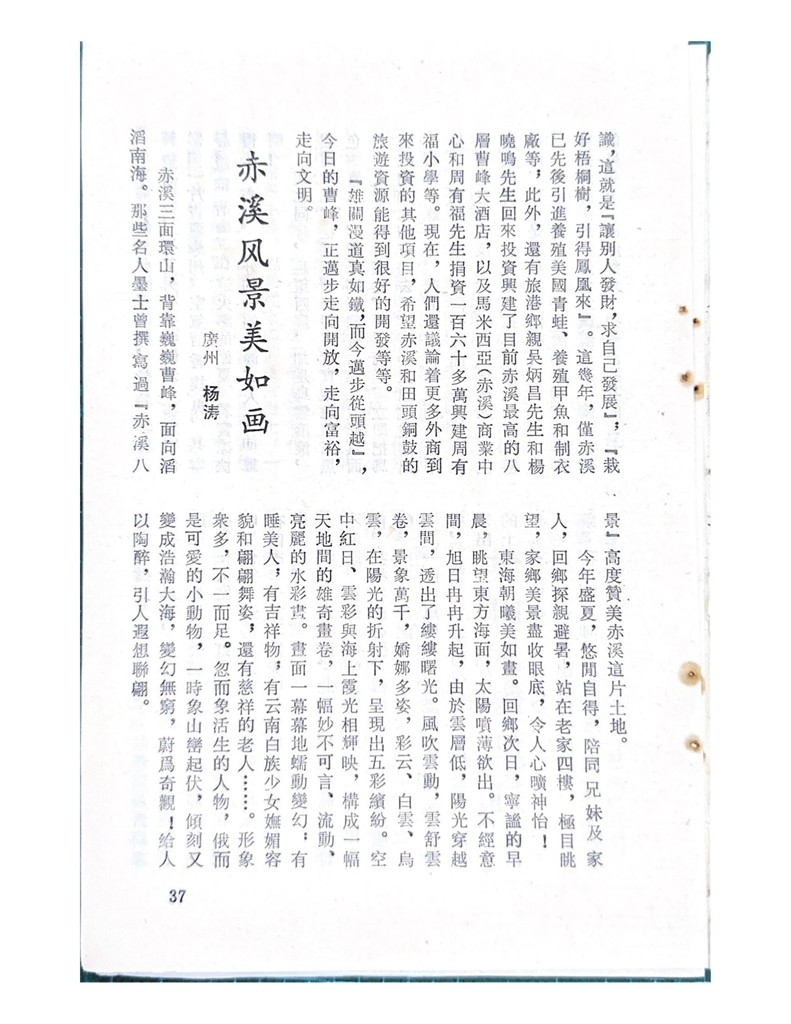 識，這就是『讓别人發財，求自己發展』，『栽
好梧桐樹，引得鳳凰來』。這幾年，僅赤溪
已先後引進養殖美國青蛙、養殖甲魚和制衣
廠等；此外，還有旅港鄉親吳炳昌先生和楊
曉鳴先生回來投資興建了目前赤溪最高的八
層曹峰大酒店，以及馬米西亞（赤溪）商業中
心和周有福先生捐資一百六十多萬興建周有
福小學等。現在，人們還議論着更多外商到
來投資的其他項目，希望赤溪和田頭銅鼓的
旅遊資源能得到很好的開發等等。
『雄關漫道真如鐵，而今邁步從頭越』，
今日的曹峰，正邁步走向開放，走向富裕，
走向文明。
赤溪风景美如画
廣州 杨涛
赤溪三面環山，背靠巍巍曹峰，面向滔
滔南海。那些名人墨士曾撰寫過『赤溪八
景』高度贊美赤溪這片土地。
今年盛夏，悠閒自得，陪同兄妹及家
人，回鄉探親避暑，站在老家四樓，極目眺
望，家鄉美景盡收眼底，令人心曠神怡！
東海朝曦美如畫。回鄉次日，寧謐的早
晨，眺望東方海面，太陽噴薄欲出。不經意
間，旭日冉冉升起，由於雲層低，陽光穿越
雲間，透出了縷縷曙光。風吹雲動，雲舒雲
卷，景象萬千，嬌娜多姿，彩云、白雲、烏
雲，在陽光的折射下，呈現出五彩繽紛。空
中紅日、雲彩與海上霞光相輝映，構成一幅
天地間的雄奇畫卷，一幅妙不可言、流動、
亮麗的水彩畫。畫面一幕幕地蠕動變幻；有
睡美人；有吉祥物；有云南白族少女嫵媚容
貌和翩翩舞姿；還有慈祥的老人……。形象
衆多，不一而足。忽而象活生的人物，俄而
是可愛的小動物，一時象山巒起伏，傾刻又
變成浩瀚大海，變幻無窮，蔚爲奇觀！給人
以陶醉，引人遐想聯翩。
37